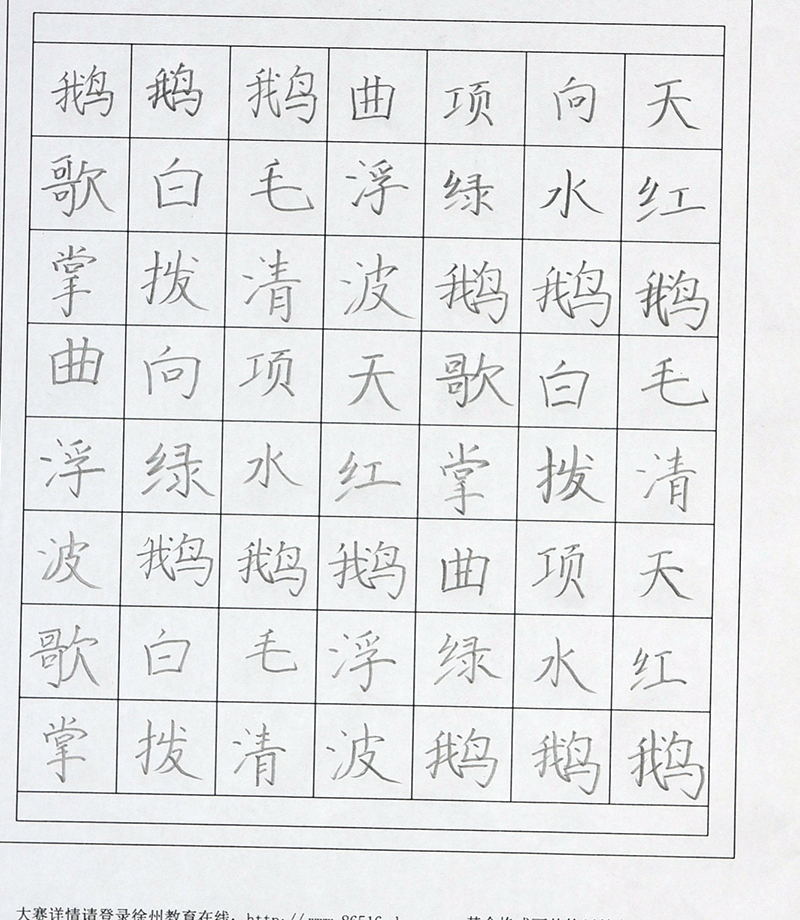 鹅鹅鹅曲项向天
歌白毛浮绿水红
掌拨清波鹅鹅鹅
曲向项天歌白毛
浮绿水红掌拨清
波鹅鹅鹅曲项天
歌白毛浮绿水红
掌拨清波鹅鹅鹅
大赛详情请登录徐州教育在线：http://www.86516